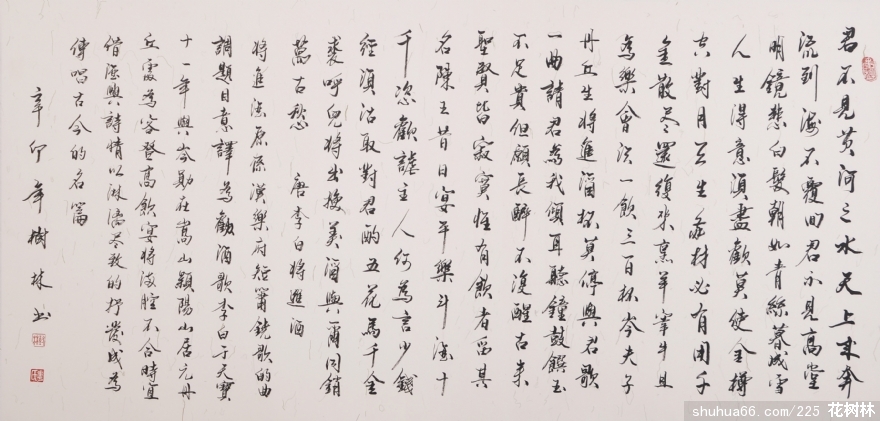 君不見黄河之水天上来奔
流到海不覆回君不見高堂
明鏡悲白髮朝如青絲暮成雪
人生得意須盡歡莫使金樽
空對月天生吾材必有用千
金散盡還復來烹羊宰牛且
為樂會须一飲三百杯岑夫子
丹丘生将進酒杯莫停與君歌
一曲請君為我傾耳聽鐘鼓饌玉
不足貴但願長醉不復醒古来
聖賢皆寂寞惟有飲者留其
名陳王昔日宴平樂斗酒十
千恣歡謔主人何為言少錢
經須沽取對君酌五花馬千金
裘呼兒将出換美酒與爾同銷
萬古愁 唐李白将進酒
将進酒原係漢樂府短簫鐃歌的曲
調題目意譯為勸酒歌李白于天寶
十一年與岑勛在嵩山穎陽山居元丹
丘處為客登高飲宴将滿腔不合時宜
借酒興詩情以淋漓盡致的抒發成為
傳唱古今的名篇
辛卯年樹林书
shuhua66.com/225 花树林